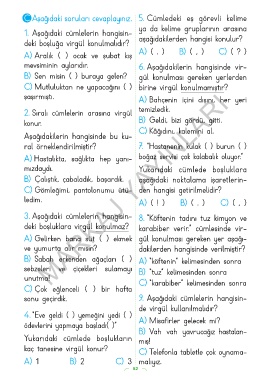 C Aşağıdaki soruları cevaplayınız.
1. Aşağıdaki cümlelerin hangisin-
deki boşluğa virgül konulmalıdır?
A) Aralık ( ) ocak ve şubat kış
mevsiminin aylarıdır.
B) Sen misin ( ) buraya gelen?
C) Mutluluktan ne yapacağını ( )
şaşırmıştı.
2. Sıralı cümlelerin arasına virgül
konur.
Aşağıdakilerin hangisinde bu ku-
ral örneklendirilmiştir?
A) Hastalıkta, sağlıkta hep yanı-
mızdaydı.
B) Çalıştık, çabaladık, başardık.
C) Gömleğimi, pantolonumu ütü-
ledim.
3. Aşağıdaki cümlelerin hangisin-
deki boşluklara virgül konulmaz?
A) Gelirken bana süt ( ) ekmek
ve yumurta alır mısın?
B) Sabah erkenden ağaçları ( )
sebzeleri ve çiçekleri sulamayı
unutma!
C) Çok eğlenceli ( ) bir hafta
sonu geçirdik.
4. "Eve geldi ( ) yemeğini yedi ( )
ödevlerini yapmaya başladı( )"
Yukarıdaki cümlede boşlukların
kaç tanesine virgül konur?
A) 1 B) 2 C) 3
5. Cümledeki eş görevli kelime
ya da kelime gruplarının arasına
aşağıdakilerden hangisi konulur?
A) ( . ) B) ( , ) C) ( ? )
6. Aşağıdakilerin hangisinde vir-
gül konulması gereken yerlerden
birine virgül konulmamıştır?
A) Bahçenin içini dışını, her yeri
temizledik.
B) Geldi, bizi gördü, gitti.
C) Kâğıdını, kalemini al.
7. "Hastanenin kulak ( ) burun ( )
boğaz servisi çok kalabalık oluyor."
Yukarıdaki cümlede boşluklara
aşağıdaki noktalama işaretlerin-
den hangisi getirilmelidir?
A) ( ! ) B) ( . ) C) ( , )
8. "Köftenin tadını tuz kimyon ve
karabiber verir." cümlesinde vir-
gül konulması gereken yer aşağı-
dakilerden hangisinde verilmiştir?
A) "köftenin" kelimesinden sonra
B) "tuz" kelimesinden sonra
C) "karabiber" kelimesinden sonra
9. Aşağıdaki cümlelerin hangisin-
de virgül kullanılmalıdır?
A) Misafirler gelecek mi?
B) Vah vah yavrucağız hastalan-
mış!
C) Telefonla tablette çok oynama-
malıyız.
52